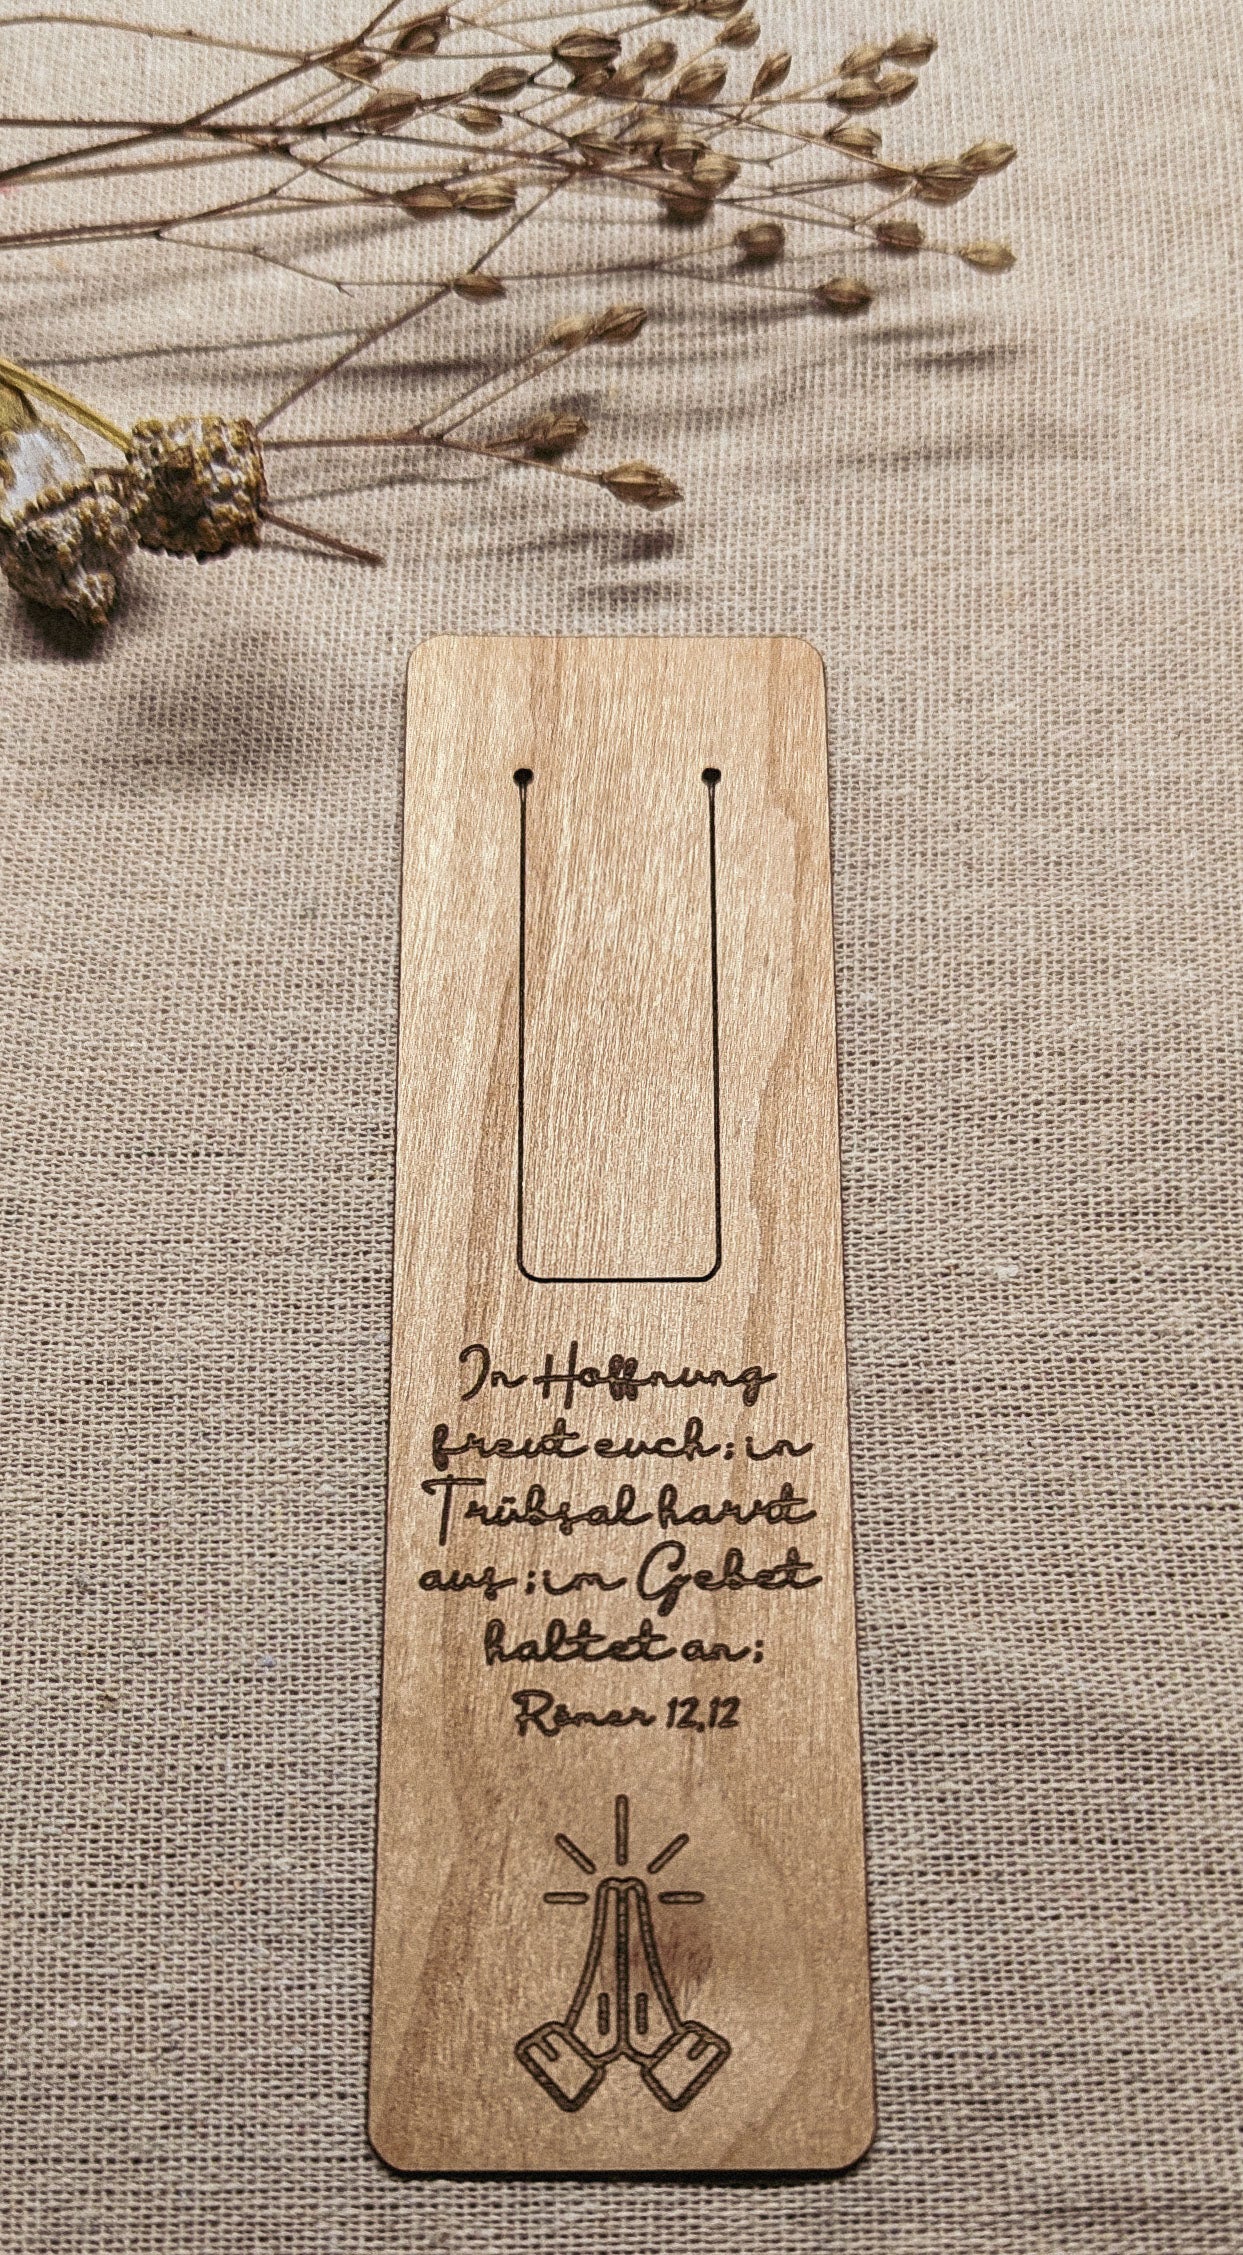 In Hoffnung
freut euch; in
Trübsal harrt
aus; im Gebet
haltet an;
Römer 12,12